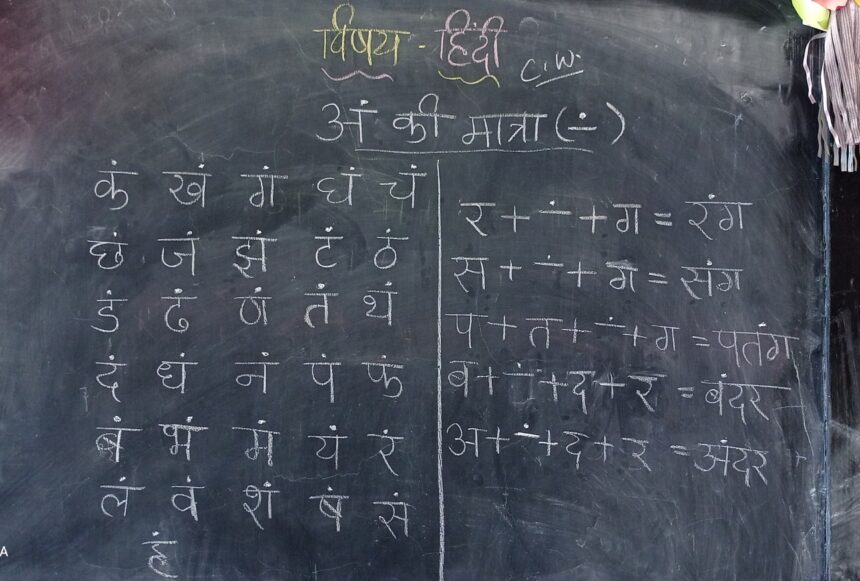 विषय - हिंदी C.W.
अं की मात्रा (-ं)
कं खं गं घं चं
छं जं झं टं ठं
डं ढं णं तं थं
दं धं नं पं फं
बं भं मं यं रं
लं वं शं षं सं
हं
र + -ं + ग = रंग
स + -ं + ग = संग
प + त + -ं + ग = पतंग
ब + -ं + द + र = बंदर
अ + -ं + द + र = अंदर
A